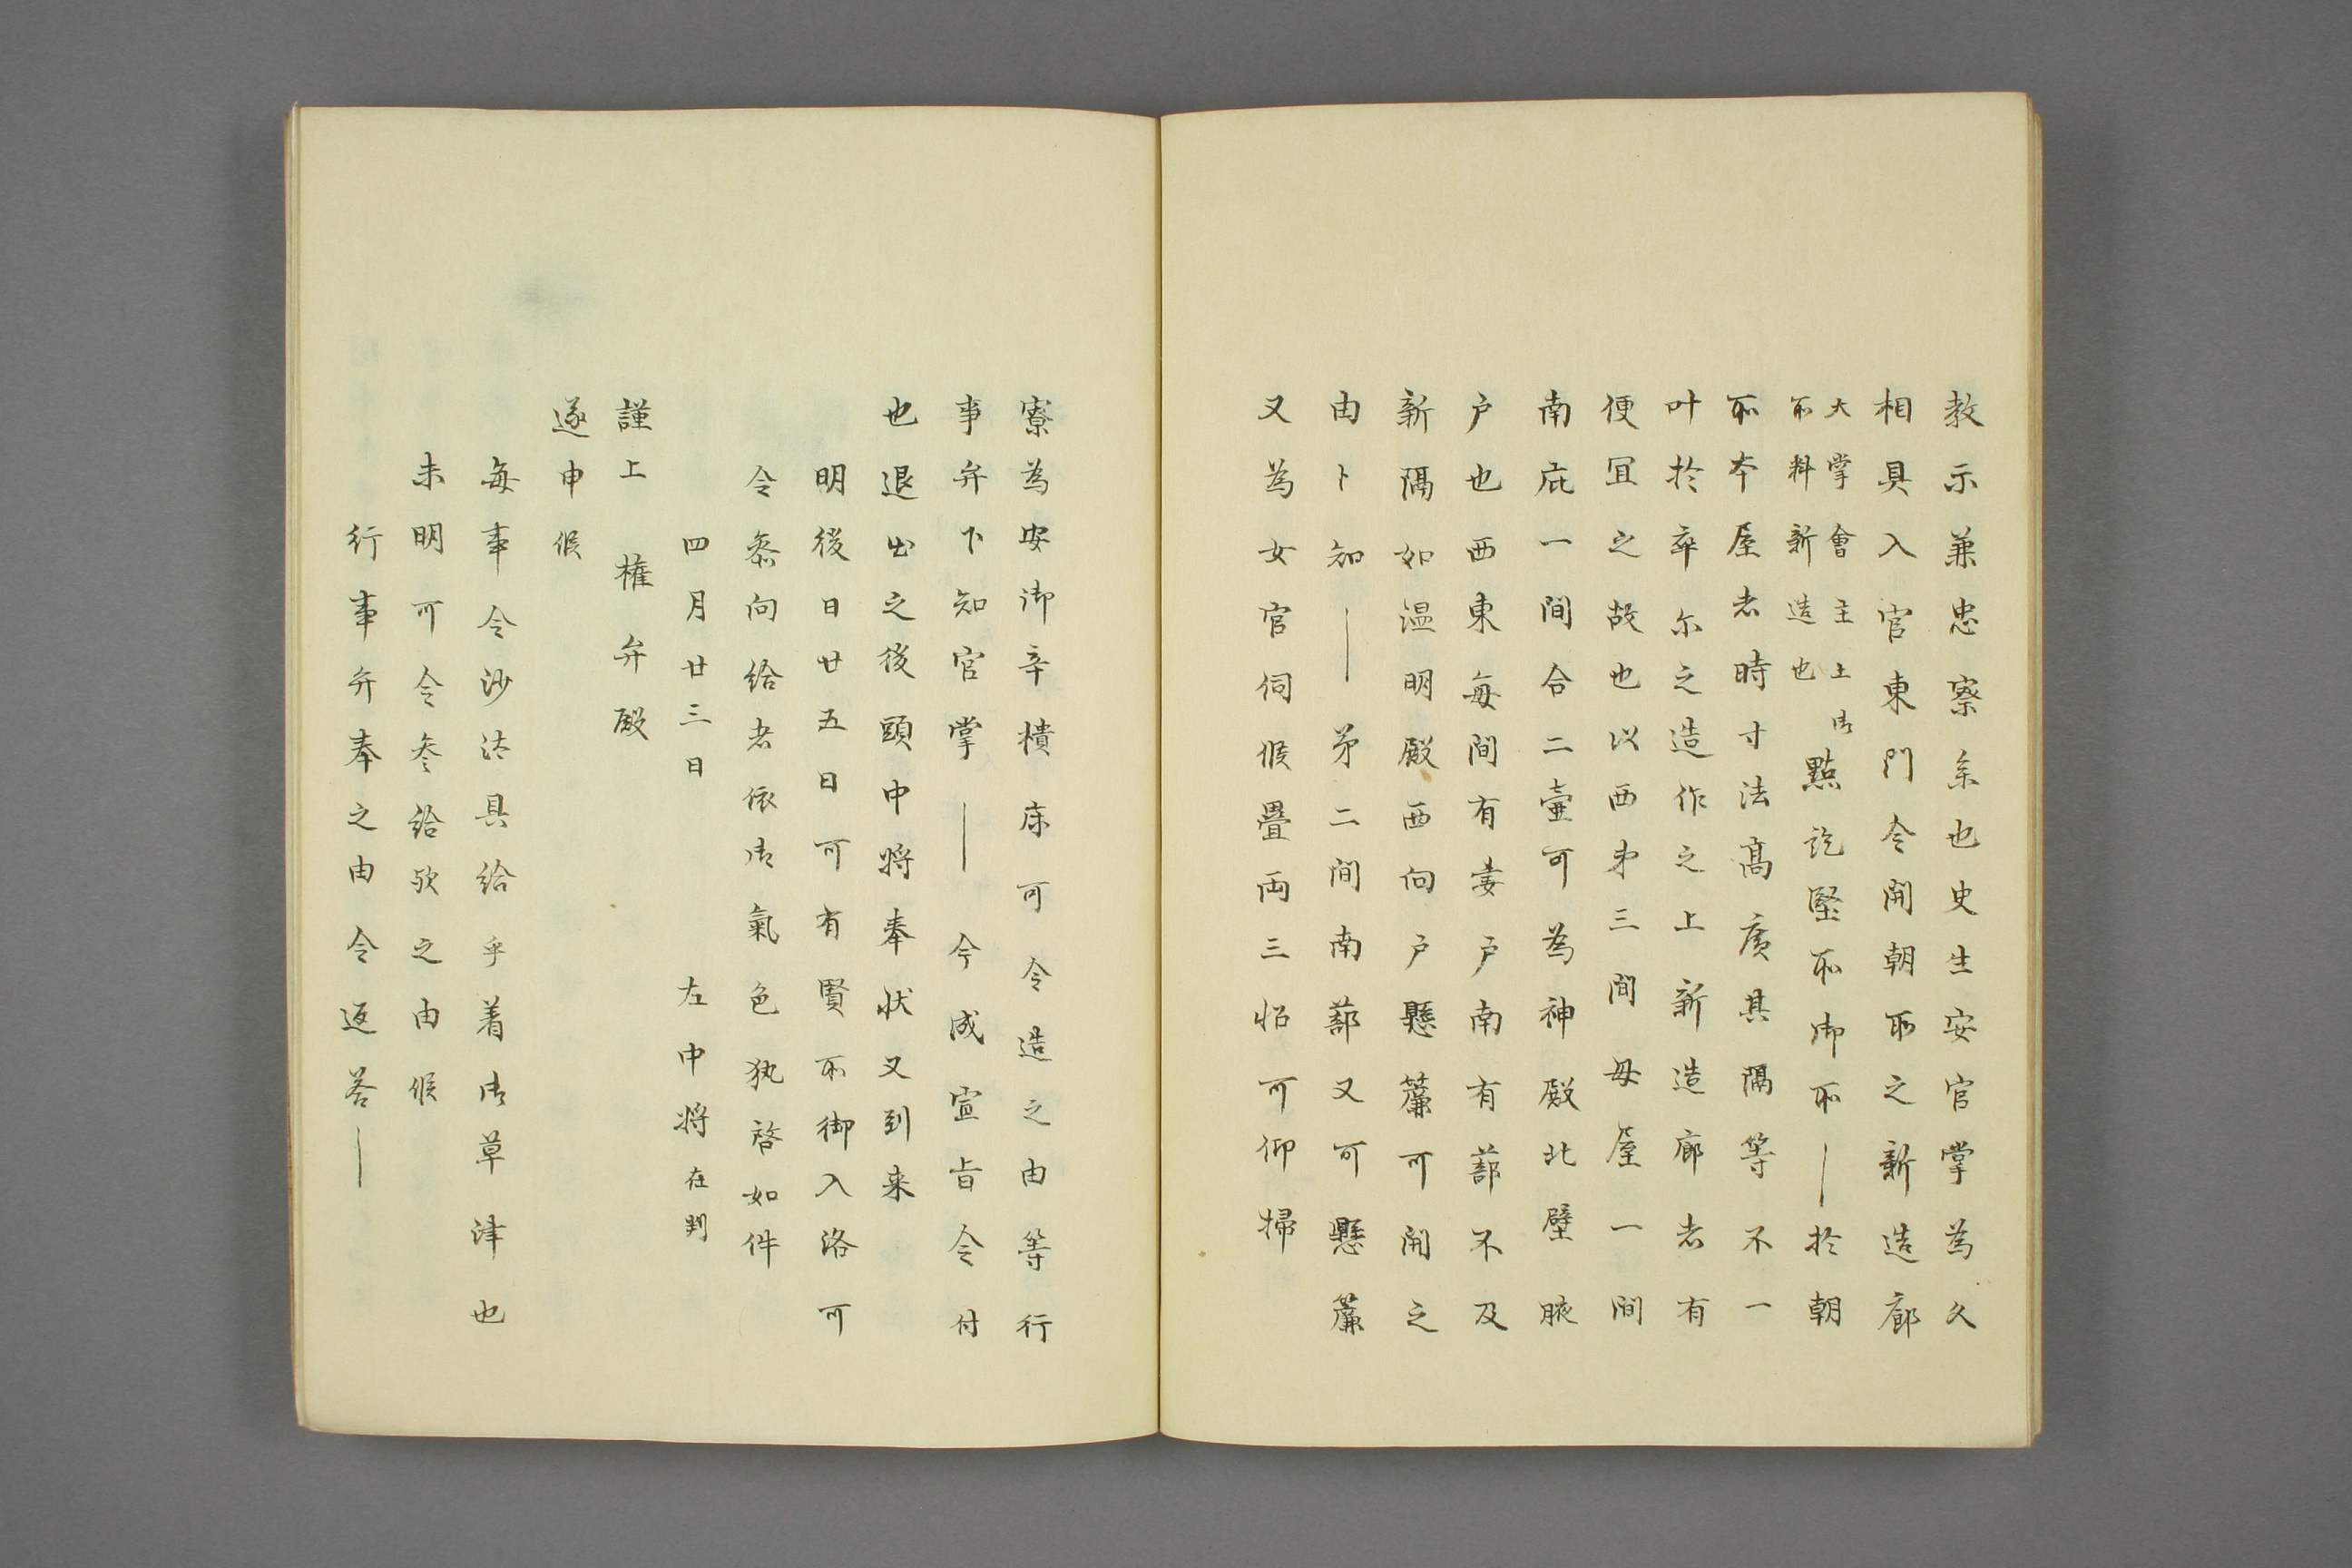 教示兼忠寮糸也史生安官掌為久
相具入官東門令開朝所之新造廊
大掌會主上御
所料新造也
點訖堅所御所｜於朝
所本屋者時寸法高廣其隔等不一
叶於卒尓之造作之上新造廊者有
便冝之故也以西弟三間母屋一間
南庇一間合二壷可為神殿北壁腋
戸也西東毎間有妻戸南有蔀不及
新隔如温明殿西向戸懸簾可開之
由卜知｜弟二間南蔀又可懸簾
又為女官伺候疊両三帖可仰掃
寮為安御辛樻床可令造之由等行
事弁下知官掌｜今成宣旨令付
也退出之後頭中将奉状又到来
明後日廿五日可有賢所御入洛可
令叅向給者依御氣色執啓如件
四月廿三日
左中将在判
謹上 権弁殿
逐申候
毎事令沙汰具給乎着御草津也
未明可令参給欤之由候
行事弁奉之由令返答｜